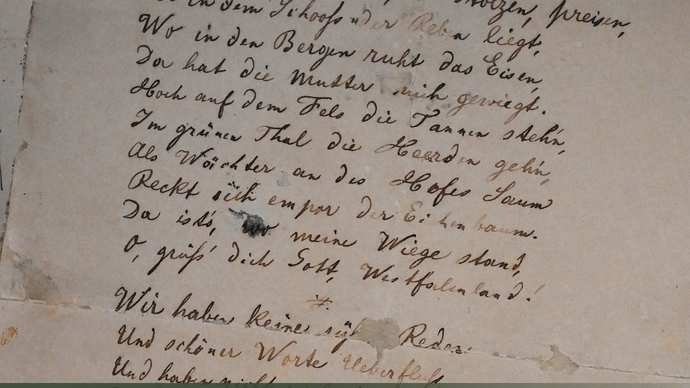 in dem Schooß der Reben liegt, preisen,
Wo in den Bergen ruht das Eisen,
Da hat die Mutter mich gewiegt.
Hoch auf dem Fels die Tannen steh'n,
Im grünen Thal die Heerden geh'n,
Als Wächter an des Hofes Saum
Reckt sich empor der Eichenbaum.
Da ist's, wo meine Wiege stand,
O, grüß' dich Gott, Westfalenland!
Wir haben keine süßen Reden
Und schöner Worte Ueberfluß
Und haben nicht